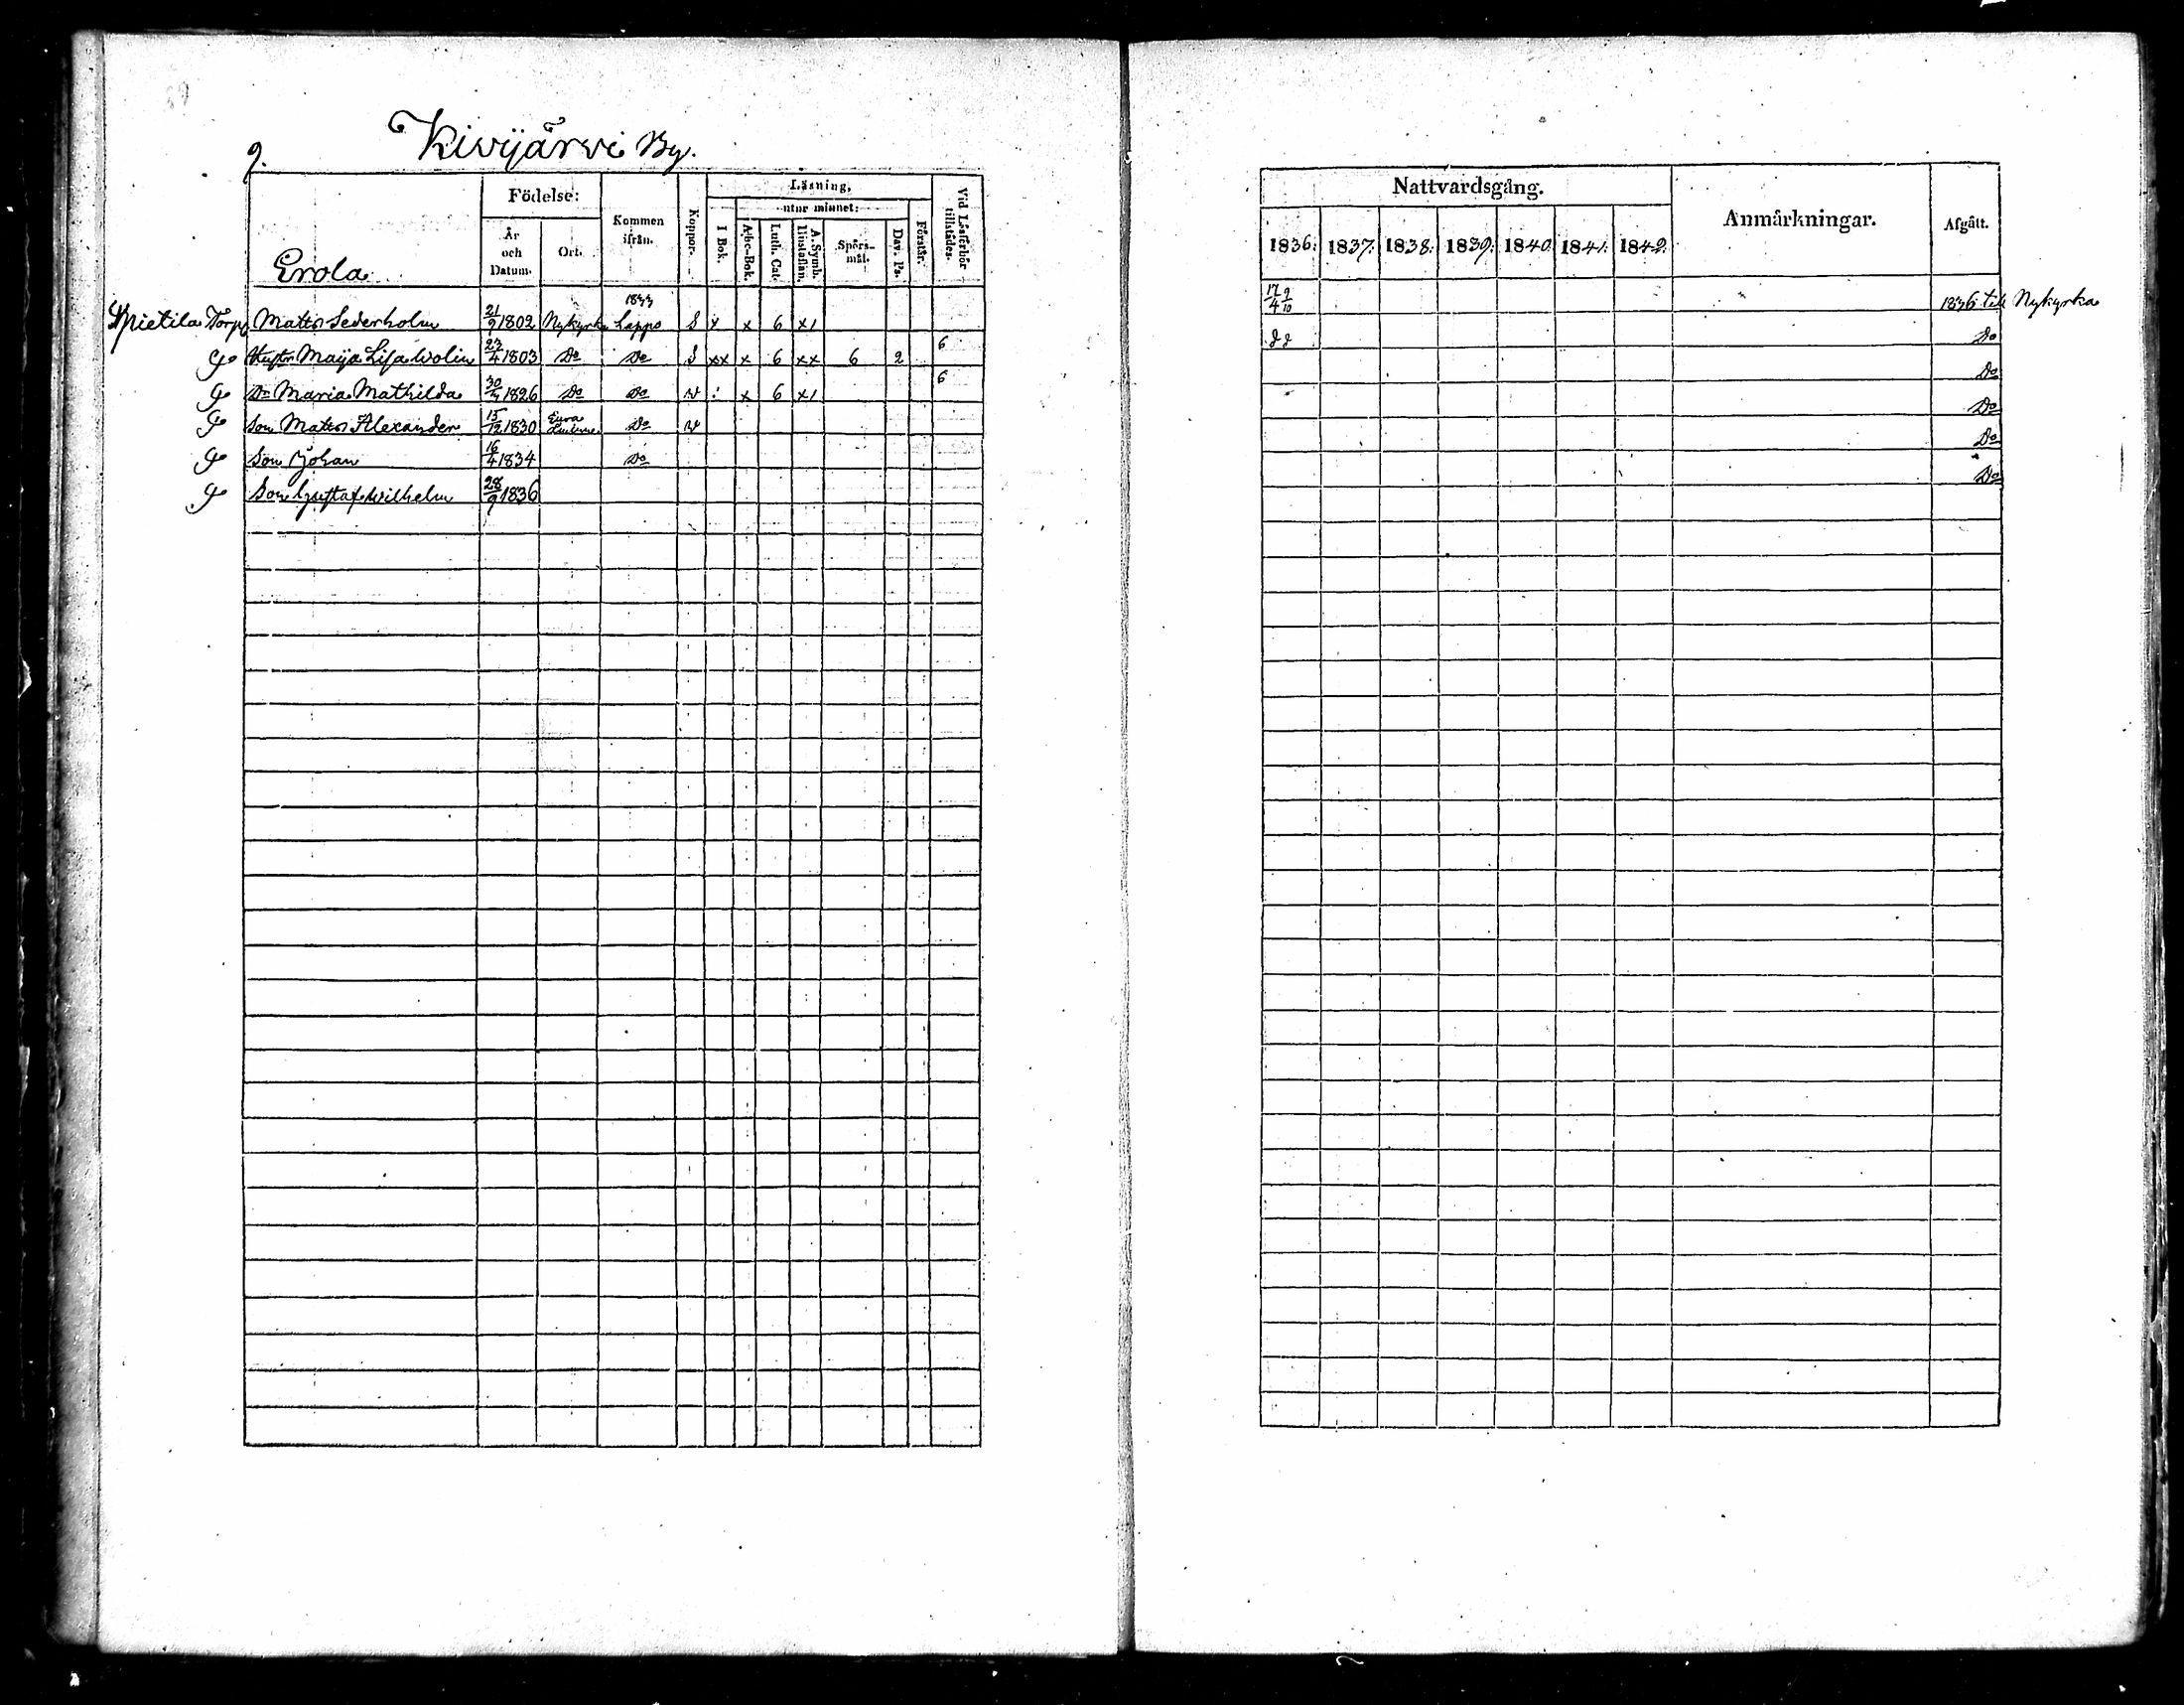 Kivijärvi By.
9.
Erola
Födelse:
År och Datum.
Ort.
Kommen ifrån.
Koppor.
Läsning.
I Bok.
utur minnet:
Abc-Bok.
Luth. Cat.
A. Symb. Hustaflan.
Spörs-mål.
Dav. Ps.
Förstår.
Vid Läsförhör tillstädes.
Torp Matts Sederholm 21/9 1802 Nykyrka 1833 Lappo S x x 6 x/
Hustru Maija Lisa Wolin 23/4 1803 Do Do S xx x 6 xx 6 2 6
Dr Maria Mathilda 1826 Do Do v : x 6 x/ 6
Son Matts Alexander 15/12 1830 Eura Do v
Son Johan 16/4 1834 Do
Son Gustaf Wilhelm 28/9 1836
Nattvardsgång.
1836. 1837. 1838. 1839. 1840. 1841. 1842.
Anmärkningar.
Afgått.
17/4 9/10 1836 till Nykyrka
Do
Do
Do
Do
Do